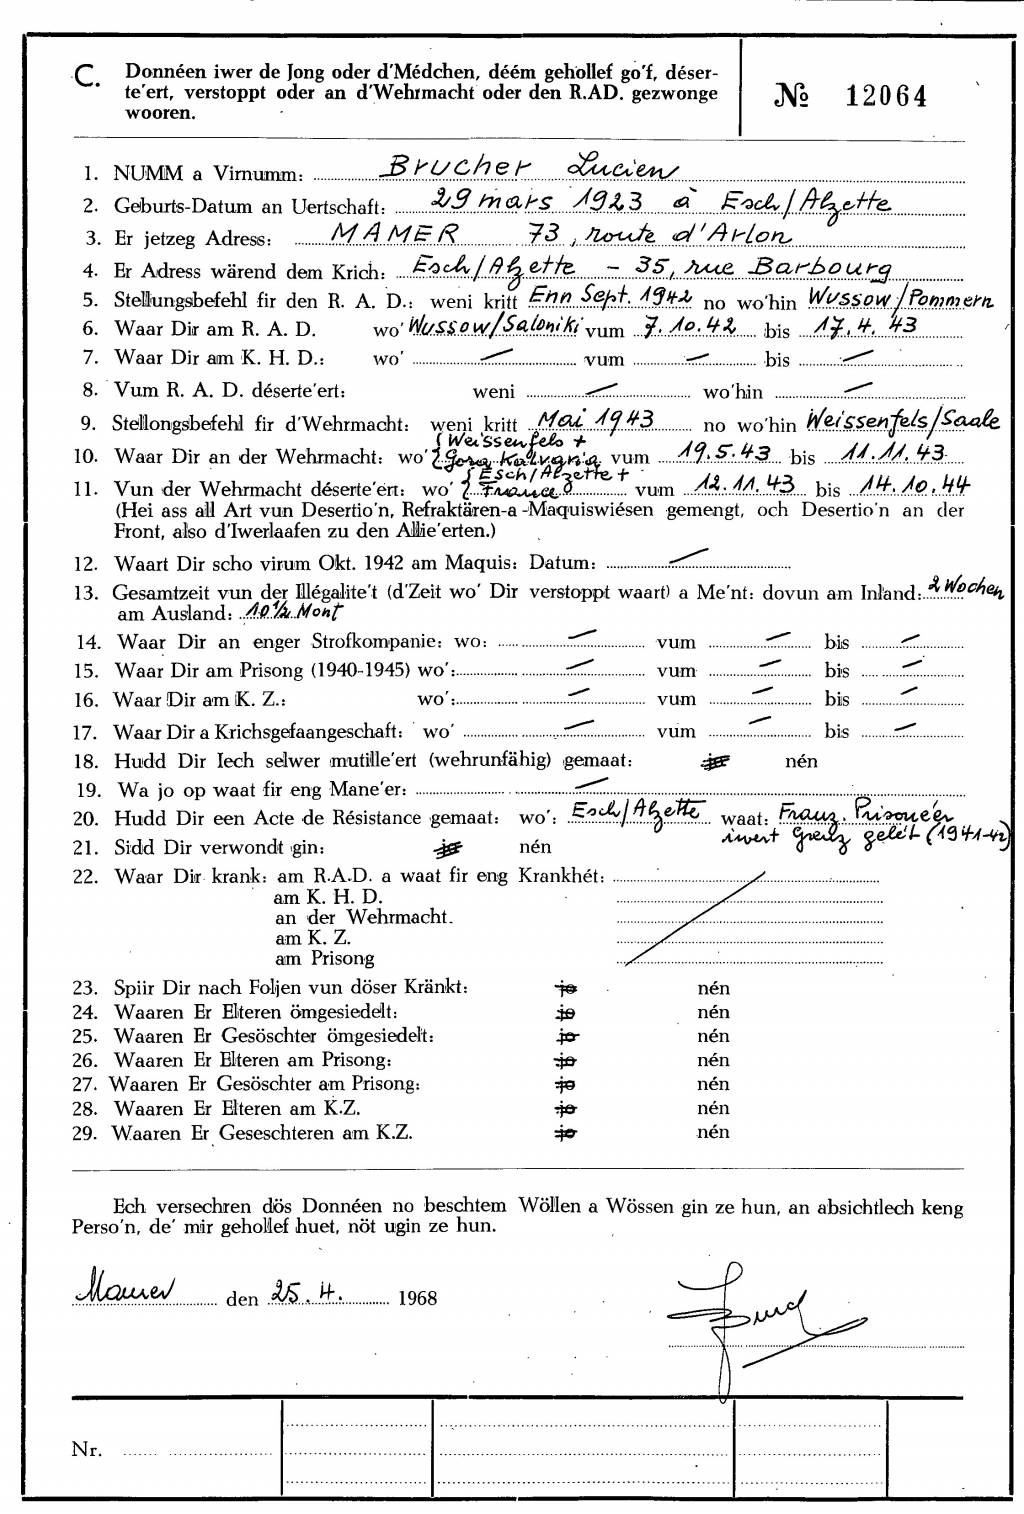 C. Donnéen iwer de Jong oder d'Médchen, déém gehollef go'f, déser-
te'ert, verstoppt oder an d'Wehrmacht oder den R.AD. gezwonge
wooren.
№ 12064
1. NUMM a Virnumm: Brucher Lucien
2. Geburts-Datum an Uertschaft: 29 mars 1923 à Esch/Alzette
3. Er jetzeg Adress: MAMER 73, route d'Arlon
4. Er Adress wärend dem Krich: Esch/Alzette - 35, rue Barbourg
5. Stellungsbefehl fir den R. A. D.: weni kritt Enn Sept. 1942 no wo'hin Wussow/Pommern
6. Waar Dir am R. A. D. wo' Wussow/Saloniki vum 7.10.42 bis 17.4.43
7. Waar Dir am K. H. D.: wo' — vum — bis —
8. Vum R. A. D. déserte'ert: weni — wo'hin —
9. Stellongsbefehl fir d'Wehrmacht: weni kritt Mai 1943 no wo'hin Weissenfels/Saale
10. Waar Dir an der Wehrmacht: wo' {Weissenfels + Gora Kalvaria vum 19.5.43 bis 11.11.43
11. Vun der Wehrmacht déserte'ert: wo' {Esch/Alzette + France vum 12.11.43 bis 14.10.44
(Hei ass all Art vun Desertio'n, Refraktären-a-Maquiswiésen gemengt, och Desertio'n an der
Front, also d'Iwerlaafen zu den Allie'erten.)
12. Waart Dir scho virum Okt. 1942 am Maquis: Datum: —
13. Gesamtzeit vun der Illégalite't (d'Zeit wo' Dir verstoppt waart) a Me'nt: dovun am Inland: 2 Wochen
am Ausland: 10 1/2 Mont
14. Waar Dir an enger Strofkompanie: wo: — vum — bis —
15. Waar Dir am Prisong (1940-1945) wo': — vum — bis —
16. Waar Dir am K. Z.: wo': — vum — bis —
17. Waar Dir a Krichsgefaangeschaft: wo' — vum — bis —
18. Hudd Dir Iech selwer mutille'ert (wehrunfähig) gemaat: jo nén
19. Wa jo op waat fir eng Mane'er: —
20. Hudd Dir een Acte de Résistance gemaat: wo': Esch/Alzette waat: Franz. Prisonéer
iwert Grenz gelét (1941-42)
21. Sidd Dir verwondt gin: jo nén
22. Waar Dir krank: am R.A.D. a waat fir eng Krankhét:
am K. H. D.
an der Wehrmacht.
am K. Z.
am Prisong
23. Spiir Dir nach Foljen vun döser Kränkt: jo nén
24. Waaren Er Elteren ömgesiedelt: jo nén
25. Waaren Er Gesöschter ömgesiedelt: jo nén
26. Waaren Er Elteren am Prisong: jo nén
27. Waaren Er Gesöschter am Prisong: jo nén
28. Waaren Er Elteren am K.Z. jo nén
29. Waaren Er Geseschteren am K.Z. jo nén
Ech versechren dös Donnéen no beschtem Wöllen a Wössen gin ze hun, an absichtlech keng
Perso'n, de' mir gehollef huet, nöt ugin ze hun.
Mamer den 25.4. 1968
Nr.